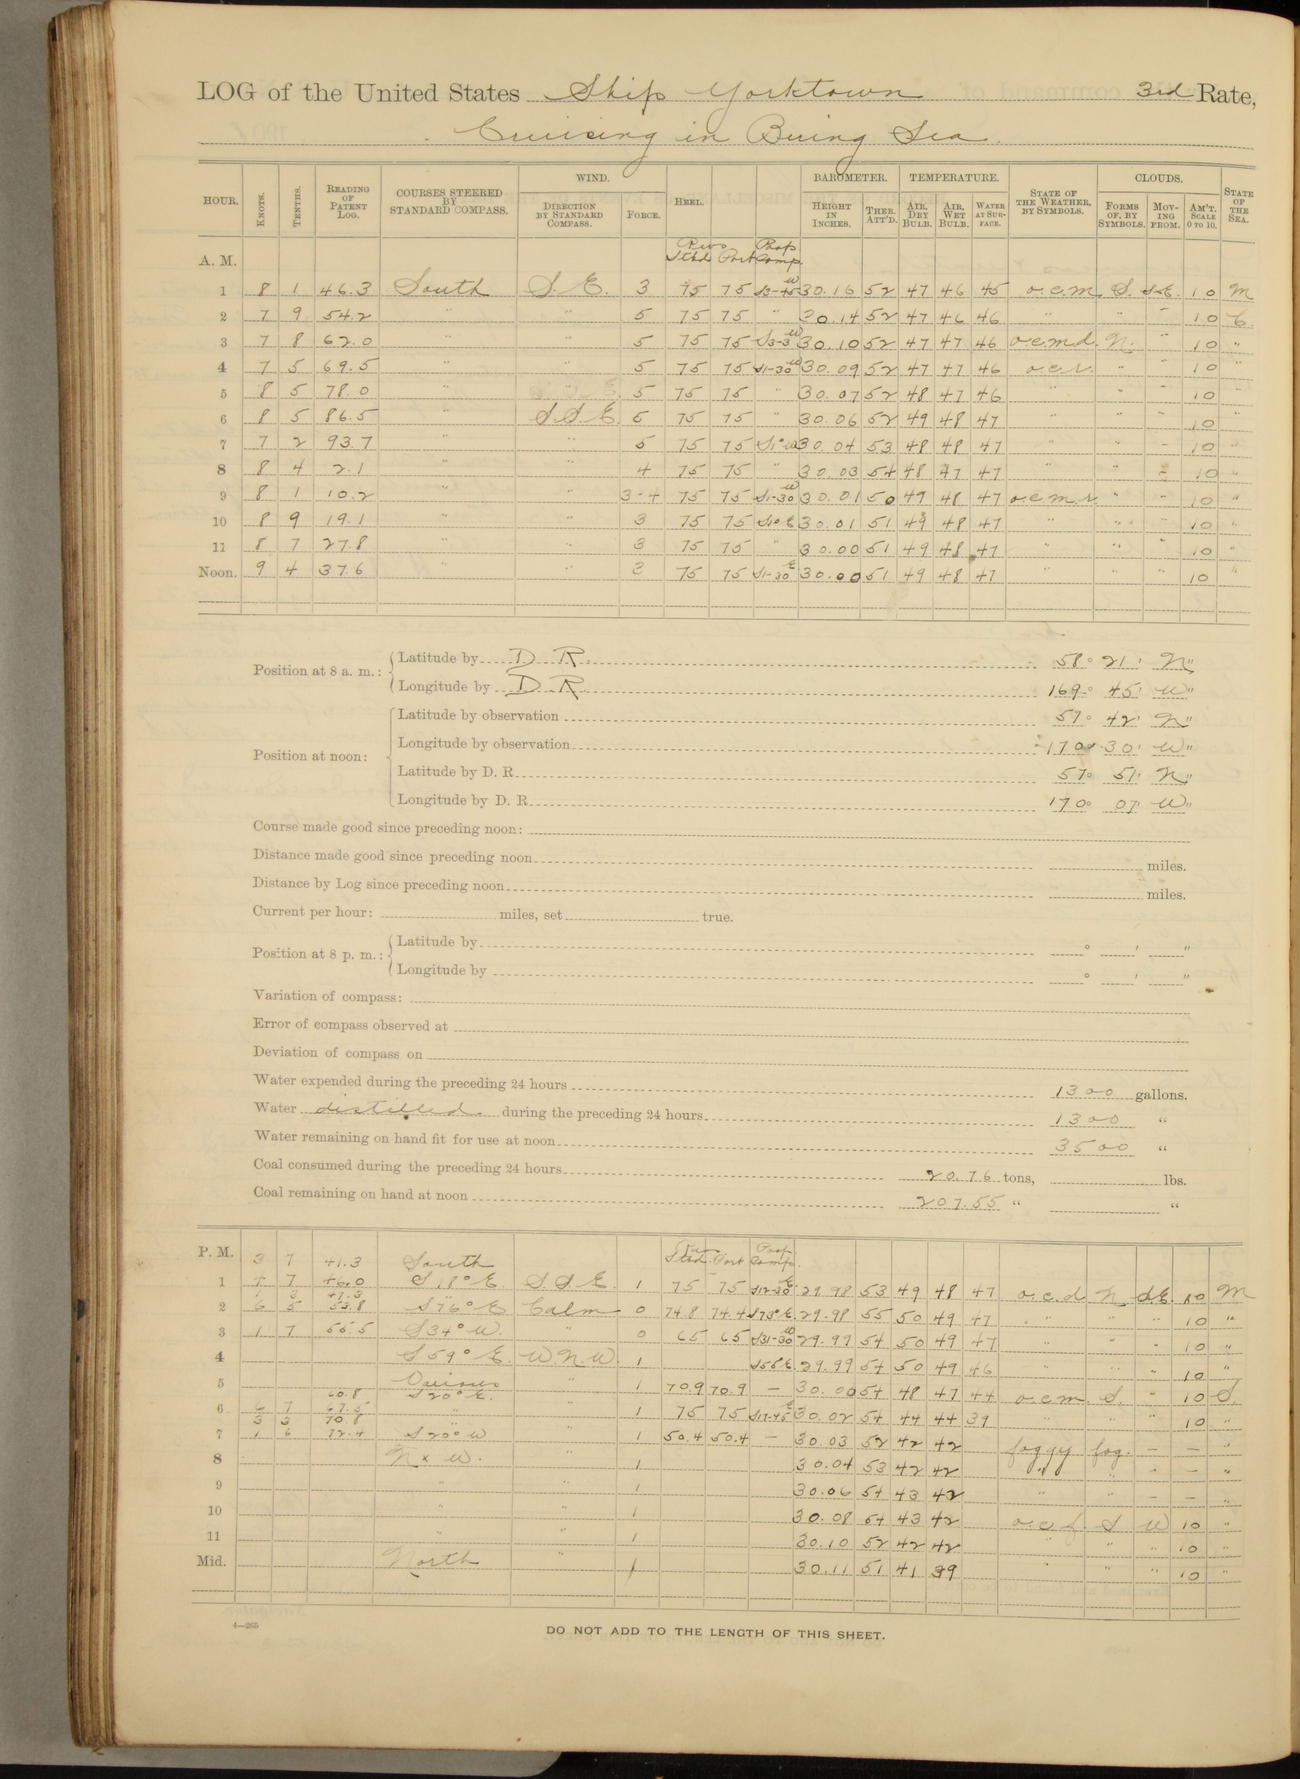 LOG of the United States Ship Yorktown 3rd Rate,
Cruising in Bering Sea
HOUR. KNOTS. TENTHS. READING OF PATENT LOG. COURSES STEERED BY STANDARD COMPASS. WIND. DIRECTION BY STANDARD COMPASS. FORCE. HEEL. BAROMETER. HEIGHT IN INCHES. THER. ATT'D. TEMPERATURE. AIR, DRY BULB. AIR, WET BULB. WATER AT SURFACE. STATE OF THE WEATHER, BY SYMBOLS. CLOUDS. FORMS OF, BY SYMBOLS. MOVING FROM. AM'T. SCALE 0 TO 10. STATE OF THE SEA.
A. M. Revs Stbd Port Prop Comp.
1 8 1 46.3 South S.E. 3 75 75 30.16 52 47 46 45 o.c.m S. S.E. 10 M
2 7 9 54.2 " " 5 75 75 " 30.14 52 47 46 46 " " " 10 C.
3 7 8 62.0 " " 5 75 75 S3-3W 30.10 52 47 47 46 o.c.m.d. N. " 10 "
4 7 5 69.5 " " 5 75 75 S1-30W 30.09 52 47 47 46 o.c.r. " " 10 "
5 8 5 78.0 " " 5 75 75 " 30.07 52 48 47 46 " " " 10 "
6 8 5 86.5 " S.S.E. 5 75 75 " 30.06 52 49 48 47 " " " 10 "
7 7 2 93.7 " " 5 75 75 S1°W 30.04 53 48 48 47 " " " 10 "
8 8 4 2.1 " " 4 75 75 " 30.03 54 48 47 47 " " " 10 "
9 8 1 10.2 " " 3-4 75 75 S1-30W 30.01 50 49 48 47 o.c.m.r. " " 10 "
10 8 9 19.1 " " 3 75 75 S1°E 30.01 51 49 48 47 " " " 10 "
11 8 7 27.8 " " 3 75 75 " 30.00 51 49 48 47 " " " 10 "
Noon. 9 4 37.6 " " 3 75 75 S1-30E 30.00 51 49 48 47 " " " 10 "
Position at 8 a. m.: Latitude by D. R. 58° 21' N"
Longitude by D R 169° 45' W"
Position at noon: Latitude by observation 57° 42' N"
Longitude by observation 170° 30' W"
Latitude by D. R. 57° 51' N"
Longitude by D. R. 170° 07' W"
Course made good since preceding noon:
Distance made good since preceding noon miles.
Distance by Log since preceding noon miles.
Current per hour: miles, set true.
Position at 8 p. m.: Latitude by ° ' "
Longitude by ° ' "
Variation of compass:
Error of compass observed at
Deviation of compass on
Water expended during the preceding 24 hours 1300 gallons.
Water distilled during the preceding 24 hours 1300 "
Water remaining on hand fit for use at noon 3500 "
Coal consumed during the preceding 24 hours 20.76 tons, lbs.
Coal remaining on hand at noon 207.55 " "
P. M. 3 7 41.3 South Stbd Port Prop Comp.
1 7 46.0 S 18° E S.S.E. 1 75 75 S12-30E 29.98 53 49 48 47 o.c.d N S.E. 10 M
1 3 47.3
2 6 5 53.8 S 76° E Calm 0 74.8 74.4 S73°E 29.98 55 50 49 47 " " " 10 "
3 1 7 55.5 S 34° W. " 0 65 65 S31-30W 29.99 54 50 49 47 " " " 10 "
4 S 59° E. W.N.W. 1 29.99 54 50 49 46 " " " 10 "
5 Various " 1 70.9 70.9 — 30.00 54 48 47 44 o.c.m. S. " 10 S.
60.8 S 20° E.
6 6 7 67.5 " " 1 75 75 S17-45E 30.02 54 44 44 39 " " " 10 "
3 3 70.8
7 1 6 72.4 S 20° W " 1 50.4 50.4 — 30.03 52 42 42 foggy fog. — — "
8 N x W. " 1 30.04 53 42 42 " " — "
9 " " 1 30.06 54 43 42 " " — — "
10 " " 1 30.08 54 43 42 o.c.f. S W 10 "
11 " " 1 30.10 52 42 42 " " " 10 "
Mid. North " 1 30.11 51 41 39 " " " 10 "
4—265
DO NOT ADD TO THE LENGTH OF THIS SHEET.